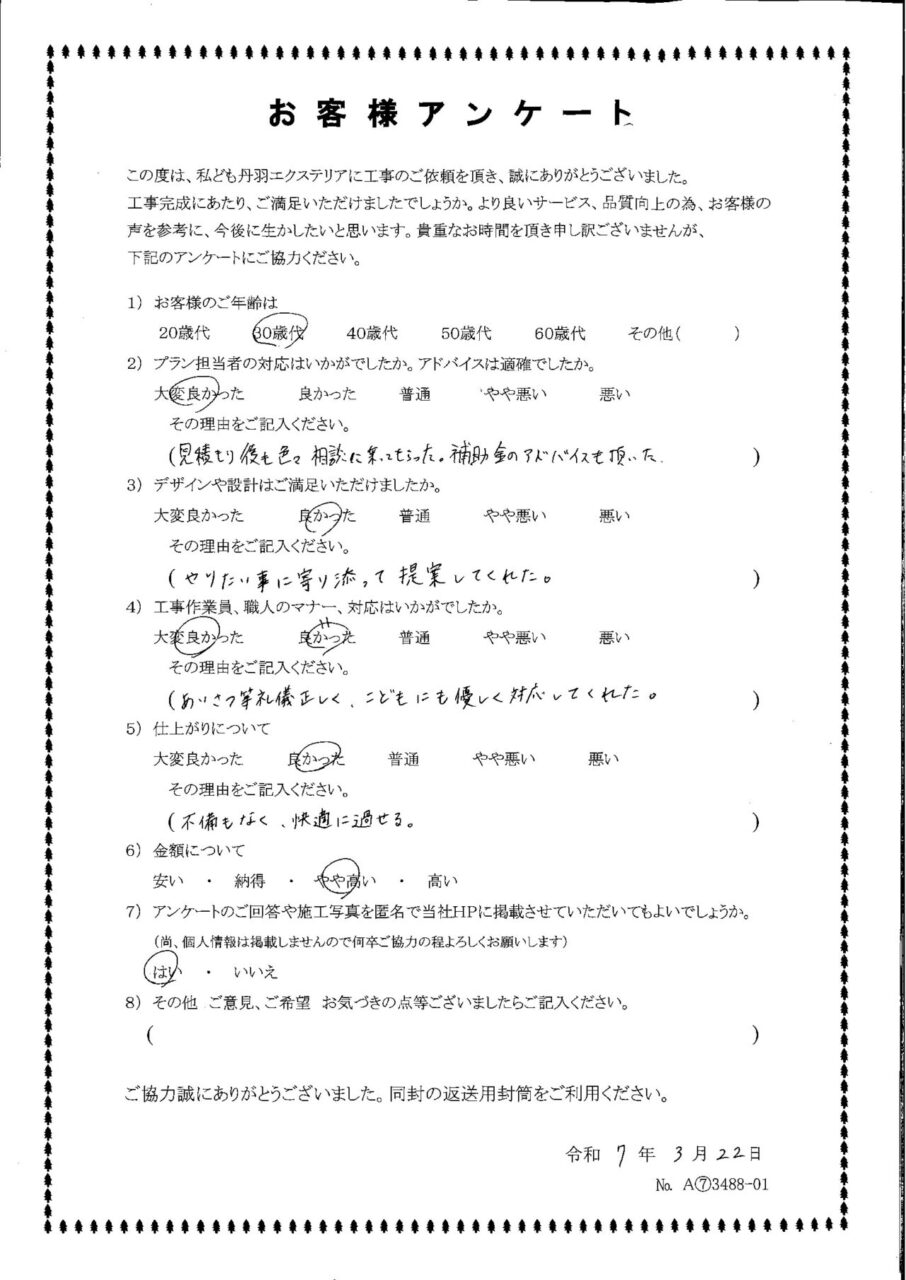 お客様アンケート
この度は、私ども丹羽エクステリアに工事のご依頼を頂き、誠にありがとうございました。
工事完成にあたり、ご満足いただけましたでしょうか。より良いサービス、品質向上の為、お客様の
声を参考に、今後に生かしたいと思います。貴重なお時間を頂き申し訳ございませんが、
下記のアンケートにご協力ください。
1) お客様のご年齢は
20歳代 30歳代 40歳代 50歳代 60歳代 その他( )
2) プラン担当者の対応はいかがでしたか。アドバイスは適確でしたか。
大変良かった 良かった 普通 やや悪い 悪い
その理由をご記入ください。
(見積もり後も色々相談に乗ってもらった。補助金のアドバイスも頂いた. )
3) デザインや設計はご満足いただけましたか。
大変良かった 良かった 普通 やや悪い 悪い
その理由をご記入ください。
(やりたい事に寄り添って提案してくれた。 )
4) 工事作業員、職人のマナー、対応はいかがでしたか。
大変良かった 良かった 普通 やや悪い 悪い
その理由をご記入ください。
(あいさつ等礼儀正しく、こどもにも優しく対応してくれた。 )
5) 仕上がりについて
大変良かった 良かった 普通 やや悪い 悪い
その理由をご記入ください。
(不備もなく、快適に過せる。 )
6) 金額について
安い ・ 納得 ・ やや高い ・ 高い
7) アンケートのご回答や施工写真を匿名で当社HPに掲載させていただいてもよいでしょうか。
(尚、個人情報は掲載しませんので何卒ご協力の程よろしくお願いします)
はい ・ いいえ
8) その他 ご意見、ご希望 お気づきの点等ございましたらご記入ください。
( )
ご協力誠にありがとうございました。同封の返送用封筒をご利用ください。
令和 7 年 3 月 22 日
№ A⑦3488-01